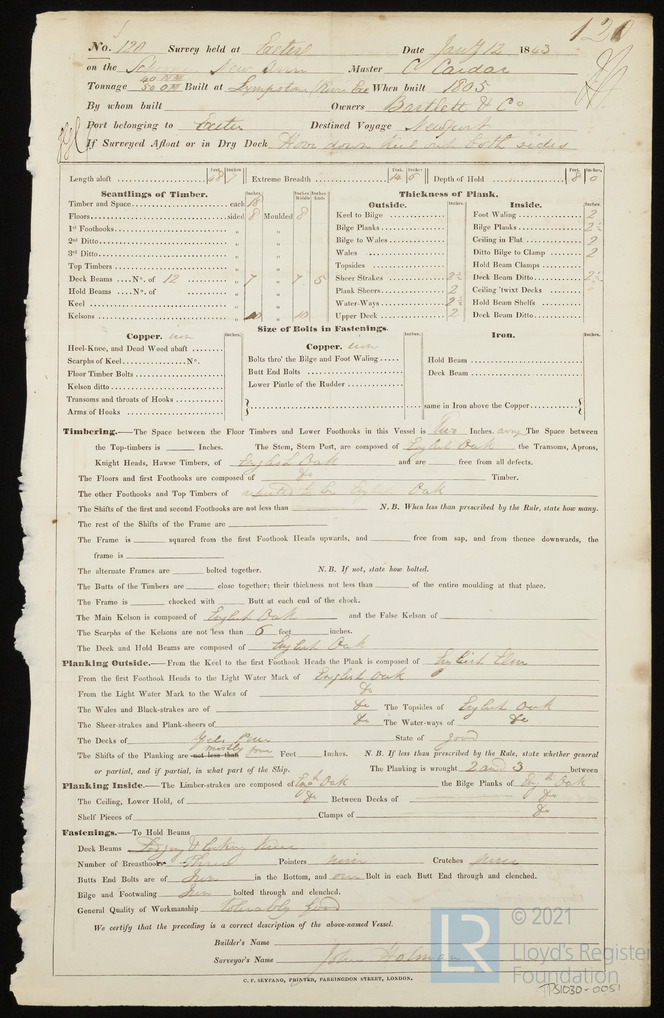 120
No. 120 Survey held at Exeter Date Jany 12 1843
on the Master C Cardar
Tonnage Built at Lympstone River Exe When built 1805
By whom built Owners Bartlett & Co
Port belonging to Exeter Destined Voyage Newport
If Surveyed Afloat or in Dry Dock Hove down keel out both sides
Length aloft Feet. Inches. 48 7 Extreme Breadth Feet. Inches. 14 5 Depth of Hold Feet. Inches. 8 0
Scantlings of Timber. Thickness of Plank.
Outside. Inside.
Timber and Space each 18 Keel to Bilge Foot Waling 2
Floors sided 8 Moulded 8 Bilge Planks Bilge Planks 2½
1st Foothooks " " Bilge to Wales Ceiling in Flat 2
2nd Ditto " " Wales Ditto Bilge to Clamp 2
3rd Ditto " " Topsides Hold Beam Clamps
Top Timbers " " Sheer Strakes 2½ Deck Beam Ditto 2½
Deck Beams No. of 12 " 7 " 7 5 Plank Sheers 2 Ceiling 'twixt Decks
Hold Beams No. of " " Water-Ways 2½ Hold Beam Shelfs
Keel " " Upper Deck 2 Deck Beam Ditto
Kelsons " 10 " 10
Size of Bolts in Fastenings.
Copper. iron Inches. Copper. iron Inches. Iron. Inches.
Heel-Knee, and Dead Wood abaft Bolts thro' the Bilge and Foot Waling Hold Beam
Scarphs of Keel No. Butt End Bolts Deck Beam
Floor Timber Bolts Lower Pintle of the Rudder
Kelson ditto
Transoms and throats of Hooks same in Iron above the Copper
Arms of Hooks
Timbering.—The Space between the Floor Timbers and Lower Foothooks in this Vessel is two Inches. The Space between
the Top-timbers is Inches. The Stem, Stern Post, are composed of English Oak the Transoms, Aprons,
Knight Heads, Hawse Timbers, of English Oak and are free from all defects.
The Floors and first Foothooks are composed of do Timber.
The other Foothooks and Top Timbers of reputed to be English Oak
The Shifts of the first and second Foothooks are not less than N.B. When less than prescribed by the Rule, state how many.
The rest of the Shifts of the Frame are
The Frame is squared from the first Foothook Heads upwards, and free from sap, and from thence downwards, the
frame is
The alternate Frames are bolted together. N.B. If not, state how bolted.
The Butts of the Timbers are close together; their thickness not less than of the entire moulding at that place.
The Frame is chocked with Butt at each end of the chock.
The Main Kelson is composed of English Oak and the False Kelson of
The Scarphs of the Kelsons are not less than 6 feet inches.
The Deck and Hold Beams are composed of English Oak
Planking Outside.—From the Keel to the first Foothook Heads the Plank is composed of English Elm
From the first Foothook Heads to the Light Water Mark of English Oak
From the Light Water Mark to the Wales of do
The Wales and Black-strakes are of do The Topsides of English Oak
The Sheer-strakes and Plank-sheers of do The Water-ways of do
The Decks of Yellow Pine State of good
The Shifts of the Planking are not less than mostly four Feet Inches. N.B. If less than prescribed by the Rule, state whether general
or partial, and if partial, in what part of the Ship. The Planking is wrought 2 and 3 between
Planking Inside.—The Limber-strakes are composed of Engh Oak the Bilge Planks of Engh Oak
The Ceiling, Lower Hold, of do Between Decks of do
Shelf Pieces of Clamps of do
Fastenings.—To Hold Beams
Deck Beams Knees
Number of Breasthooks Three Pointers none Crutches none
Butts End Bolts are of Iron in the Bottom, and one Bolt in each Butt End through and clenched.
Bilge and Footwaling Iron bolted through and clenched.
General Quality of Workmanship tolerably good
We certify that the preceding is a correct description of the above-named Vessel.
Builder's Name
Surveyor's Name John Holman
C. F. SEYFANG, PRINTER, FARRINGDON STREET, LONDON.
LR © 2021
Lloyd's Register
Foundation
PS1030-0051